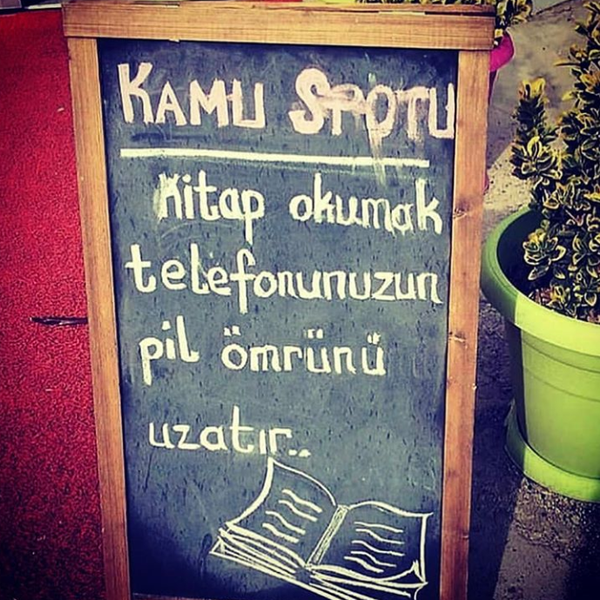 KAMU SPOTU
Kitap okumak
telefonunuzun
pil ömrünü
uzatır..